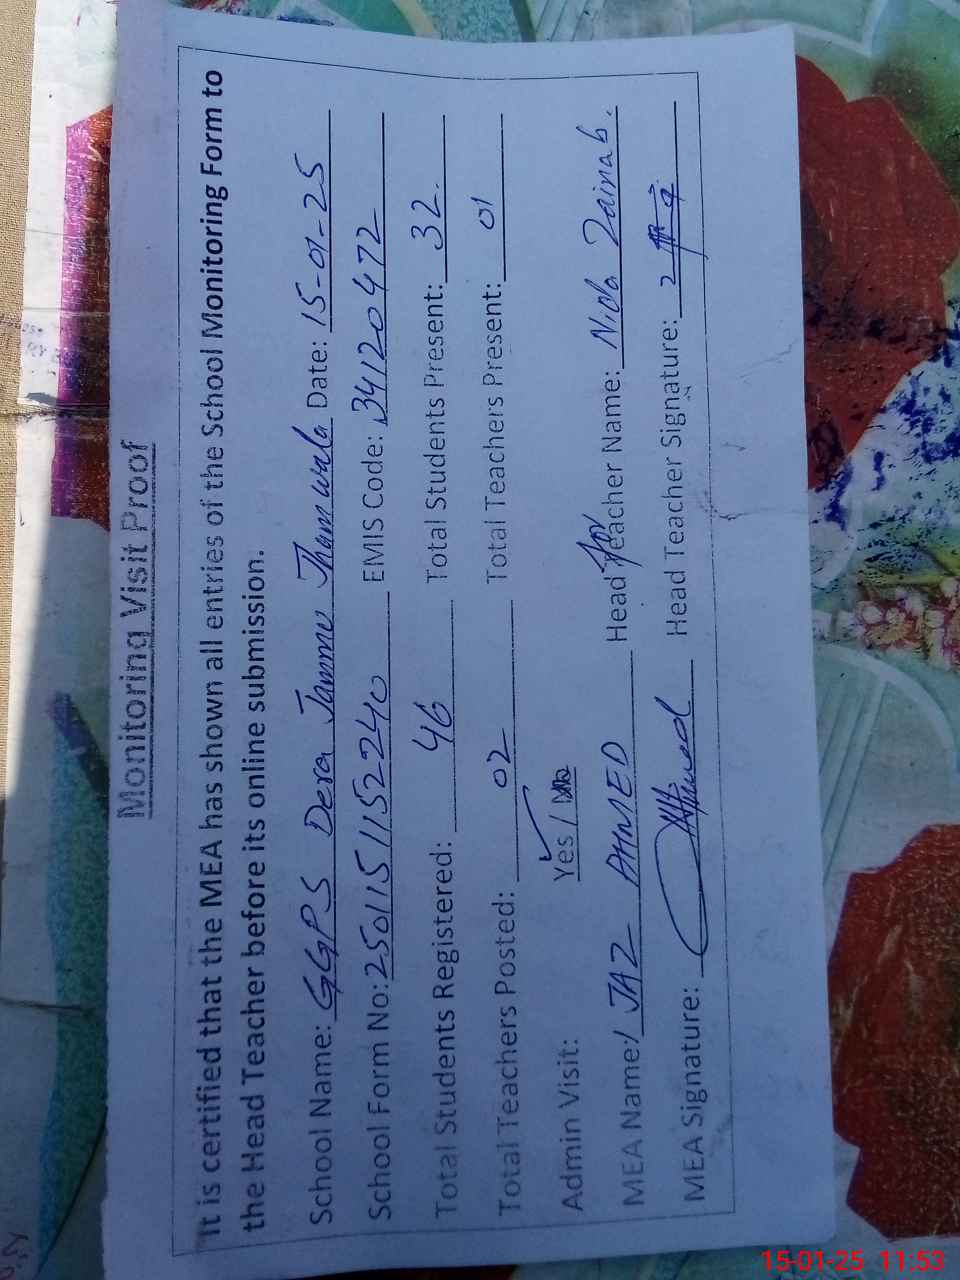 Monitoring Visit Proof
It is certified that the MEA has shown all entries of the School Monitoring Form to
the Head Teacher before its online submission.
School Name: GGPS Dera Jammu Thamwala Date: 15-01-25
School Form No: 2501151152240 EMIS Code: 34120472
Total Students Registered: 46 Total Students Present: 32.
Total Teachers Posted: 02 Total Teachers Present: 01
Admin Visit: Yes / No
MEA Name: IJAZ AHMED Head Teacher Name: Nida Zainab.
MEA Signature: Head Teacher Signature:
15-01-25 11:53